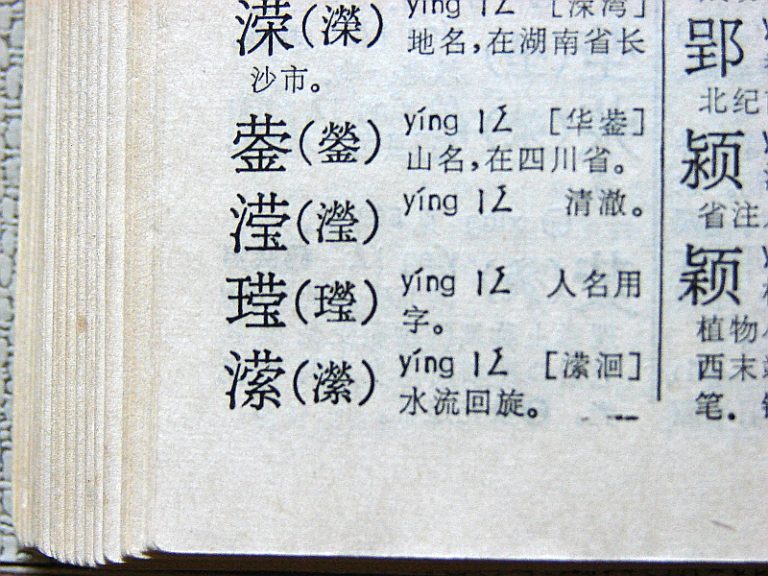 溁(濚) yíng ㄧㄥ [溁湾]
地名,在湖南省长
沙市。
蓥(鎣) yíng ㄧㄥ [华蓥]
山名,在四川省。
滢(瀅) yíng ㄧㄥ 清澈。
yíng ㄧㄥ 人名用
字。
潆(瀠) yíng ㄧㄥ [潆洄]
水流回旋。
郢
北纪
颍
省注
颖
植物
西末
笔.